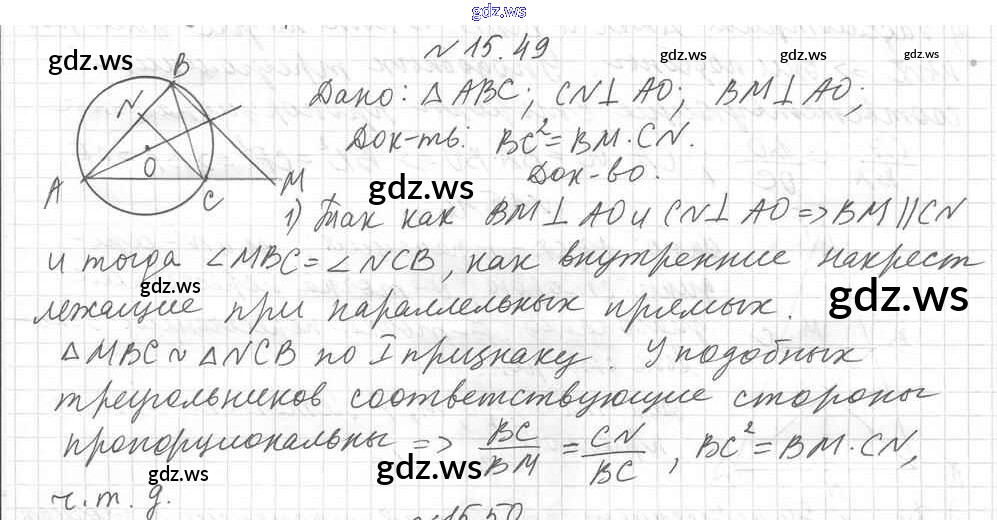 gdz.ws
№ 15.49
gdz.ws gdz.ws gdz.ws
B
N
O
A
C
M
Дано: △ABC; CN⊥AO; BM⊥AO;
Док-ть: BC²=BM·CN.
gdz.ws
Док-во:
1) Так как BM⊥AO и CN⊥AO => BM||CN
и тогда ∠MBC=∠NCB, как внутренние накрест
gdz.ws gdz.ws
лежащие при параллельных прямых.
△MBC ~ △NCB по I признаку. У подобных
треугольников соответствующие стороны
пропорциональны => BC/BM = CN/BC, BC²=BM·CN,
gdz.ws gdz.ws gdz.ws
ч.т.д.
№15.50